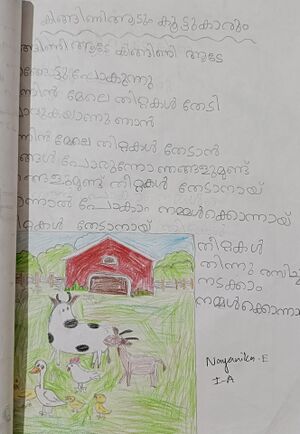 കിങ്ങിണിആടും കൂട്ടുകാരും
കിങ്ങിണി ആടേ കിങ്ങിണി ആടേ
പോകുന്നു
മേലെ തീറ്റകൾ തേടി
ഞാൻ
മേലെ തീറ്റകൾ തേടാൻ
പോരുന്നോ ഞങ്ങളുമുണ്ട്
ഞങ്ങളുമുണ്ട് തീറ്റകൾ തേടാനായ്
എന്നാൽ പോകാം നമ്മൾക്കൊന്നായ്
തീറ്റകൾ തേടാനായ്
തീറ്റകൾ
തിന്നു രസിച്ചു
നടക്കാം
നമ്മൾക്കൊന്നായ്
Nayanika-E
I-A